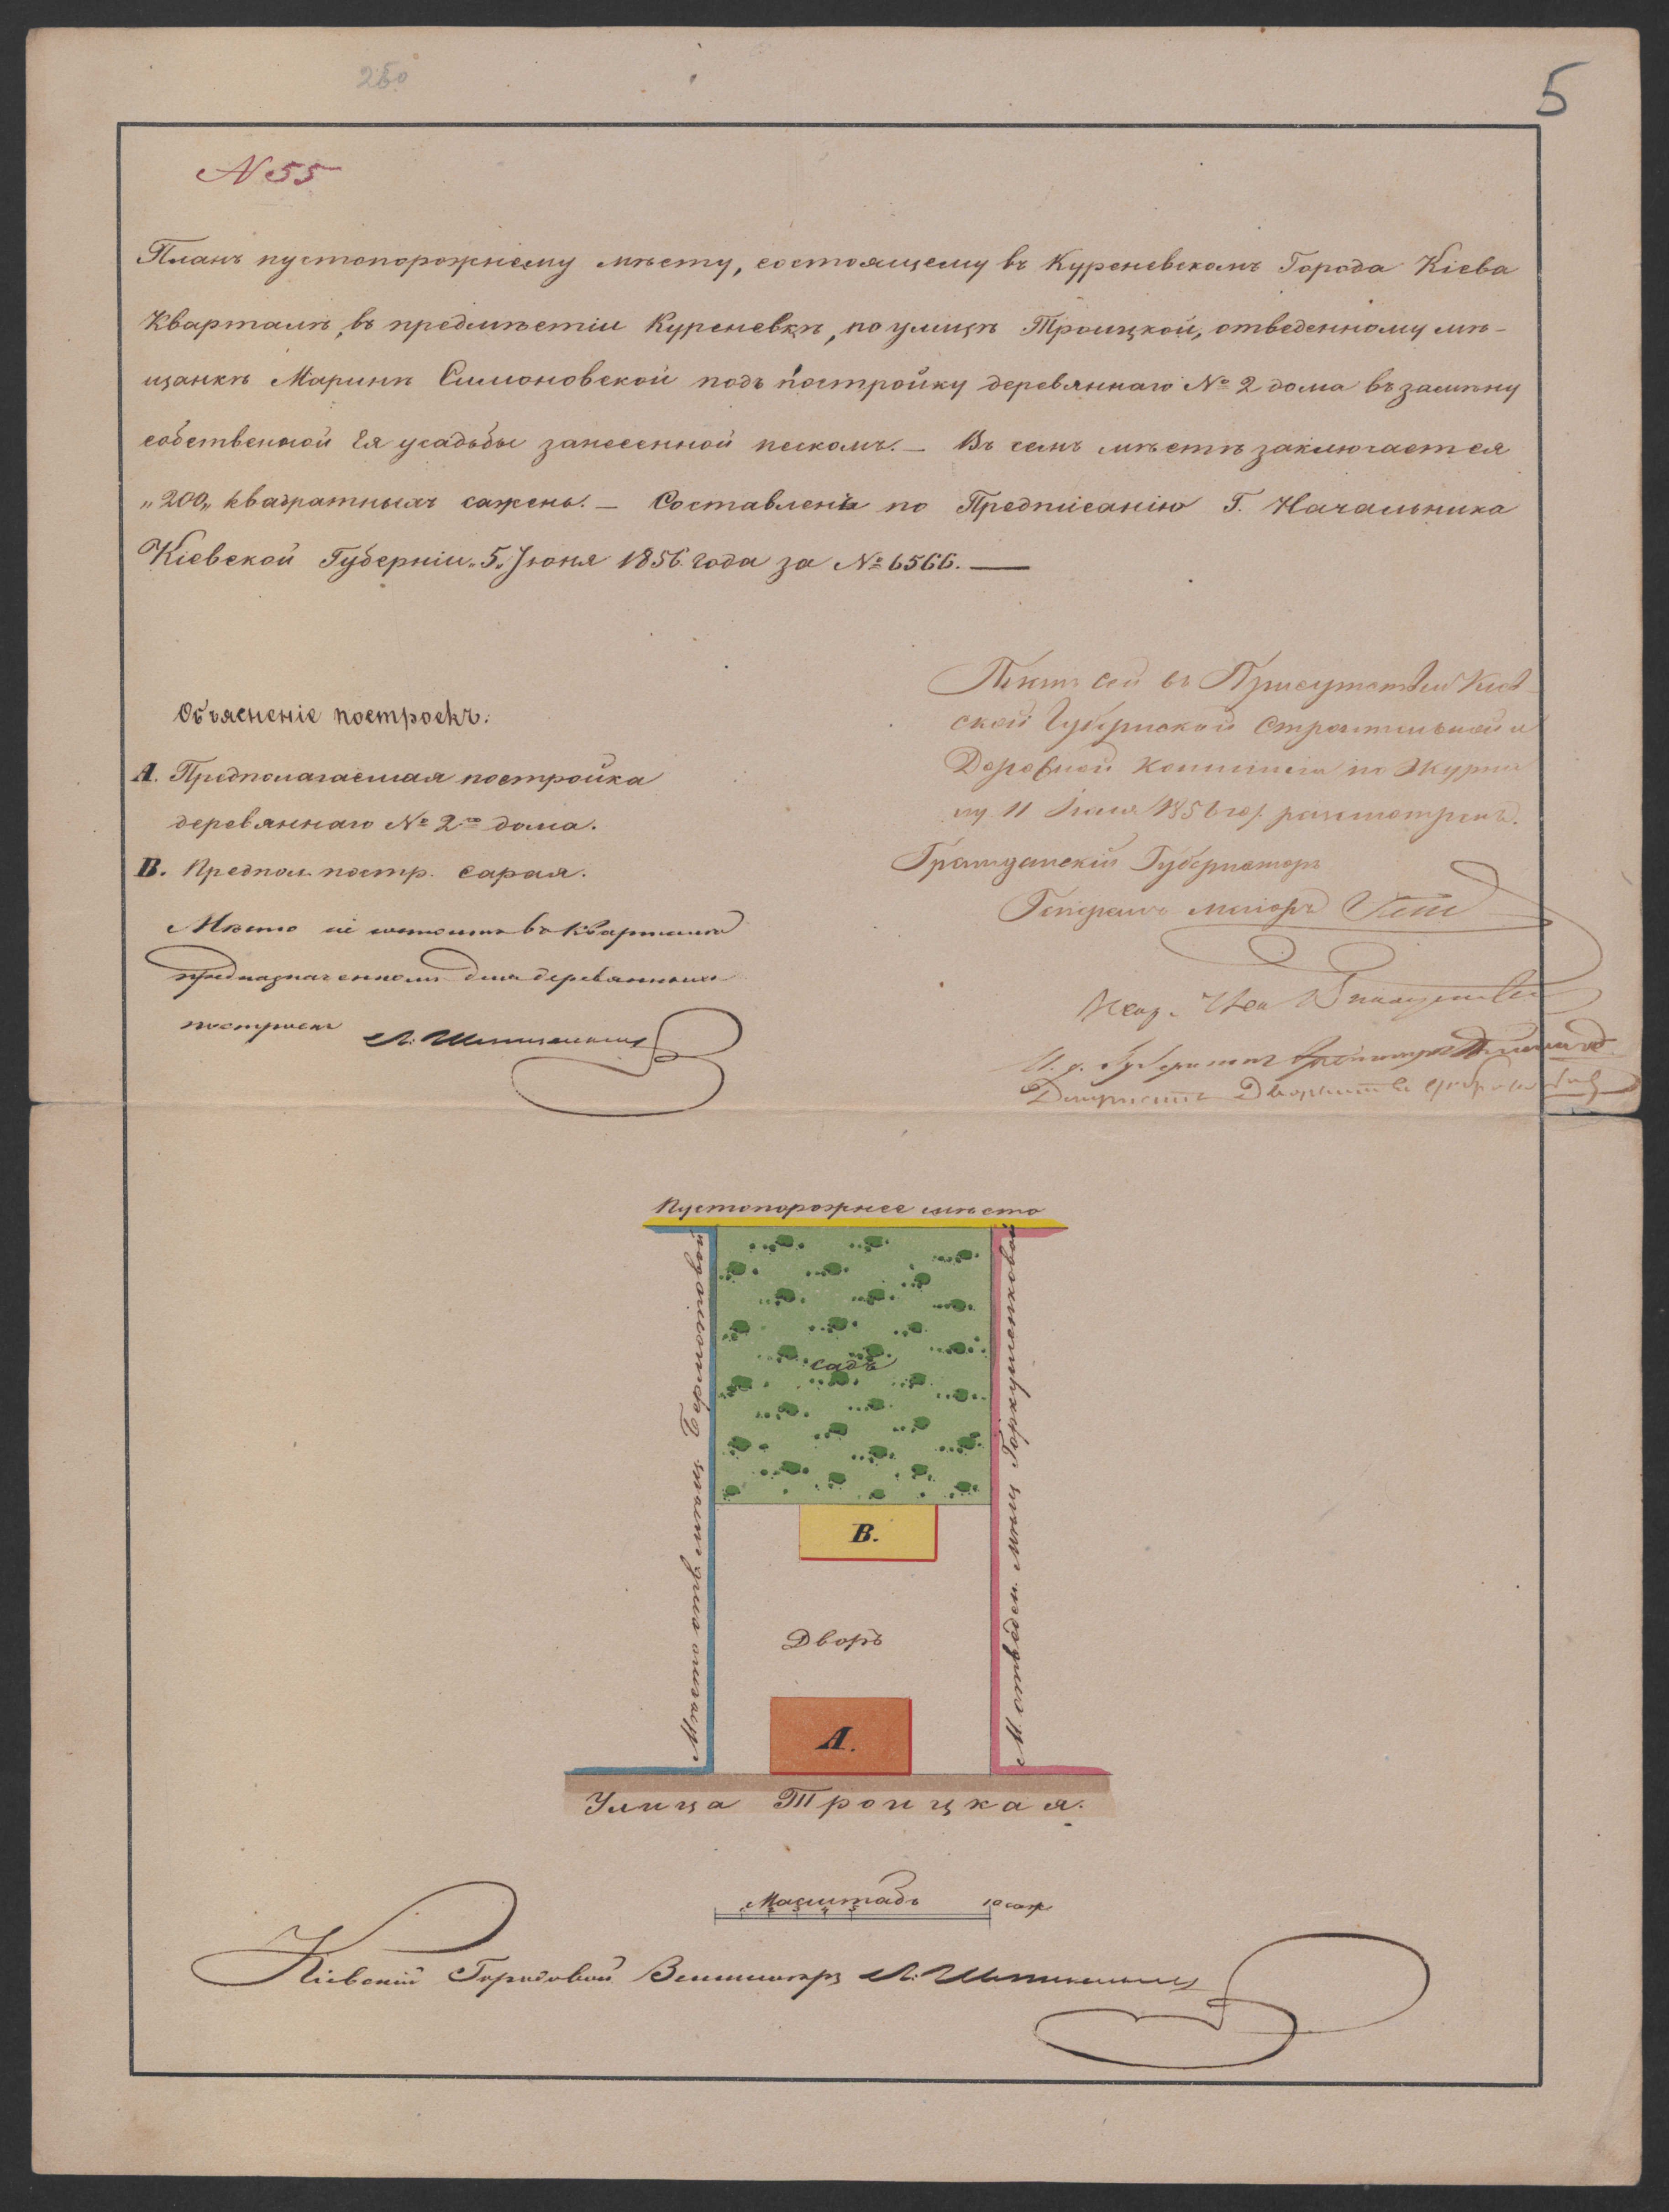 250
5
N 55
Планъ пустопорожнему мѣсту, состоящему въ Куреневскомъ Города Кіева
Кварталѣ, въ предмѣстіи Куреневкѣ, по улицѣ Троицкой, отведенному мѣ-
щанкѣ Маринѣ Симоновской подъ постройку деревяннаго № 2 дома въ замѣну
собственной Ея усадьбы занесенной пескомъ. — Въ семъ мѣстѣ заключается
„200„ квадратныхъ сажень. — Составленъ по Предписанію Г. Начальника
Кіевской Губерніи „5„ Іюня 1856 года за № 6566. —
Объясненіе построекъ:
А. Предполагаемая постройка
деревяннаго № 2го дома.
В. Предпол. постр. сарая.
Мѣсто сіе состоитъ въ Кварталѣ
предназначенномъ для деревянныхъ
построекъ
Планъ сей въ Присутствіи Кіев-
ской Губернской Строительной и
Дорожной Коммисіи по Журна-
лу 11 Іюля 1856 год. разсмотренъ.
Гражданскій Губернаторъ
Генералъ маіоръ
Пустопорожнее мѣсто
Мѣсто отвед. мѣщ.
М. отведен. мѣщ.
садъ
В.
Дворъ
А.
Улица Троицкая.
Масштабъ 10 саж.
1 2 3 4 5
Кіевскій Городовой Землемѣръ